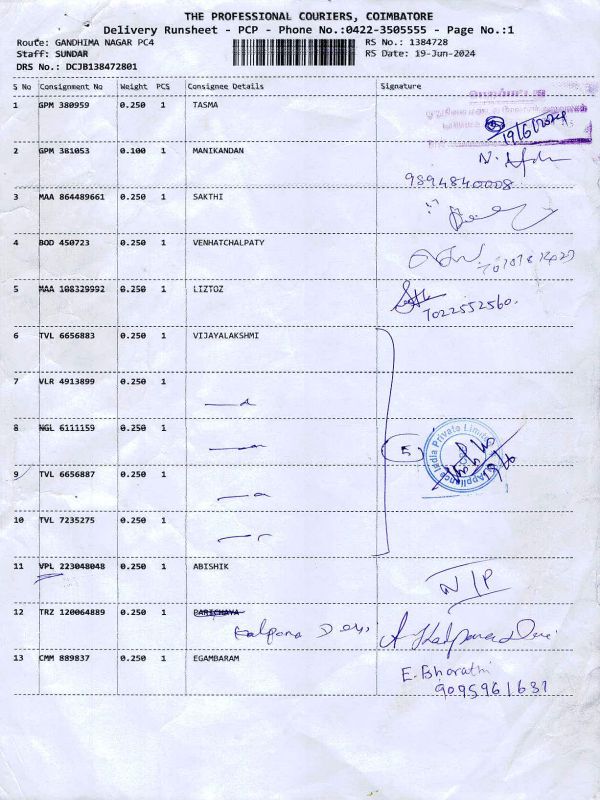 THE PROFESSIONAL COURIERS, COIMBATORE
Delivery Runsheet - PCP - Phone No.:0422-3505555 - Page No.:1
Route: GANDHIMA NAGAR PC4 RS No.: 1384728
Staff: SUNDAR RS Date: 19-Jun-2024
DRS No.: DCJB138472801
S No Consignment No Weight PCS Consignee Details Signature
1 GPM 380959 0.250 1 TASMA
19/6/2024
2 GPM 381053 0.100 1 MANIKANDAN
9894840008
3 MAA 864489661 0.250 1 SAKTHI
4 BOD 450723 0.250 1 VENHATCHALPATY
5 MAA 108329992 0.250 1 LIZTOZ
7022552560.
6 TVL 6656883 0.250 1 VIJAYALAKSHMI
7 VLR 4913899 0.250 1
8 NGL 6111159 0.250 1
5
Appliance India Private Limited
9 TVL 6656887 0.250 1
10 TVL 7235275 0.250 1
11 VPL 223048048 0.250 1 ABISHIK
N/P
12 TRZ 120064889 0.250 1 PARICHAYA
Kalpana Devi
13 CMM 889837 0.250 1 EGAMBARAM
E. Bharathi
9095961631